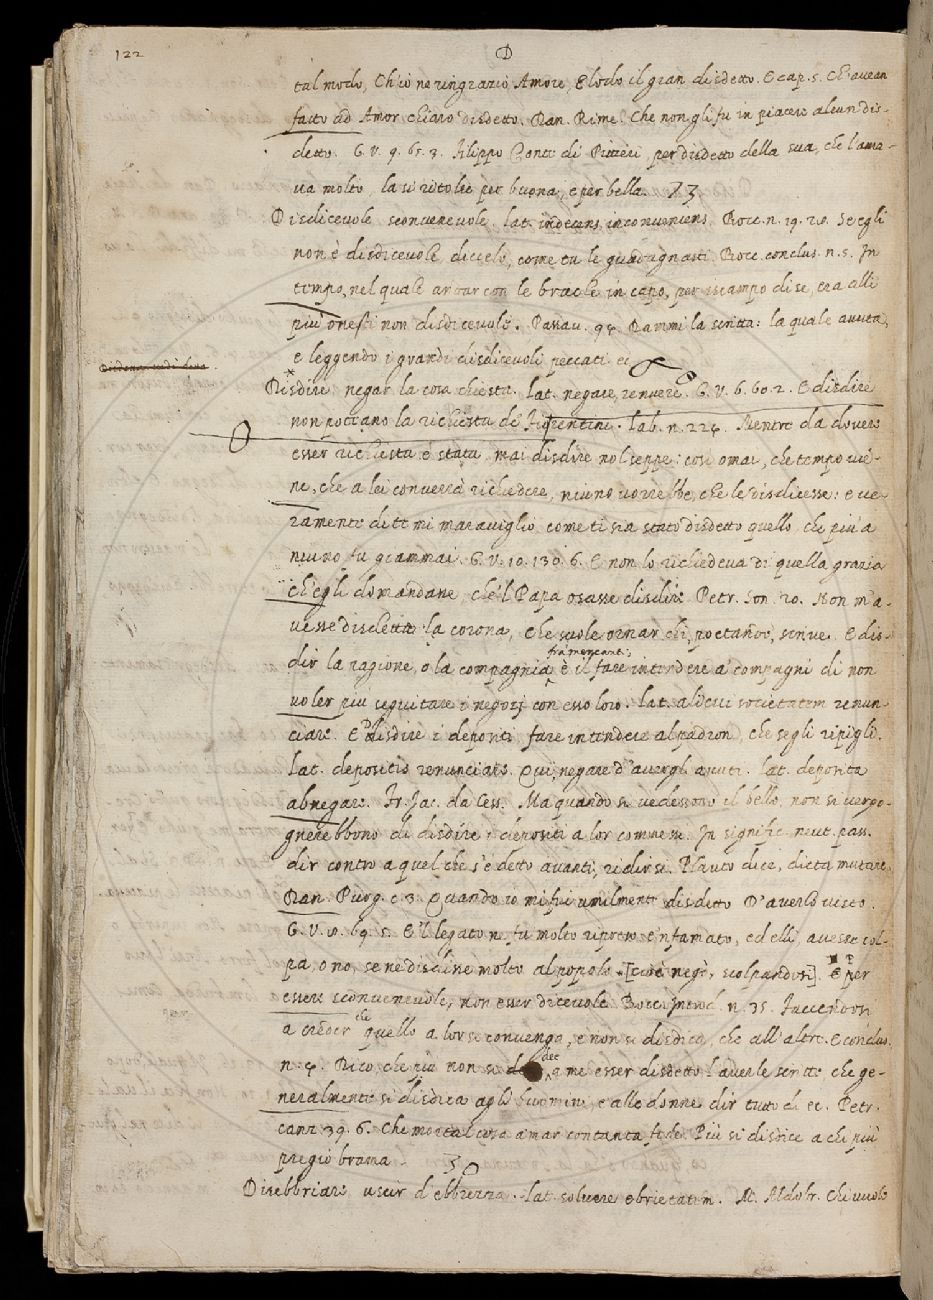 122
D
tal modo, Ch'io ne ringrazio Amore, E lodo il gran disdetto. E cap. 5. Ch'avean
fatto ad Amor chiaro disdetto. Dan. Rime. Che non gli fu in piacere alcun dis-
detto. G. V. 9. 65. 3. Filippo Conte di Pittieri, per disdetto della sua, che l'ama-
va molto, la si ritolse per buona, e per bella.
Disdicevole. sconvenevole. lat. indecens, inconveniens. Bocc. n. 19. 20. Se egli
non è disdicevole, diccelo, come tu le guadagnasti. Bocc. conclus. n. 5. In
tempo, nel quale andar con le brache in capo, per iscampo di se, era alli
più onesti non disdicevole. Passav. 94. Dammi la scritta: la quale avuta,
e leggendo i grandi disdicevoli peccati ec
Disdire. negar la cosa chiesta. lat. negare, renuere. G. V. 6. 60. 2. E disdire
non poteano la richiesta de' Fiorentini. lab. n. 224. Mentre da dovero
esser richiesta è stata, mai disdire nol seppe: così omai, che tempo vie-
ne, che a lei converrà richiedere, niuno vorrebbe, che le disdicesse: e ve-
ramente di te mi maraviglio come ti sia stato disdetto quello, che più a
niuno fu giammai. G. V. 10. 130. 6. E non lo richiedeva di quella grazia
ch'egli domandane, che'l Papa osasse disdire. Petr. Son. 20. Non m'a-
vesse disdetta la corona, Che suole ornar chi, poetando, scrive. E dis-
dir la ragione, o la compagnia fra mercanti, è il fare intendere a' compagni di non
voler più seguitare i negozj con esso loro. lat. alicui societatem renun-
ciare. E disdire i depositi, fare intendere al padron, che se gli ripigli.
lat. depositis renunciare. Qui, negare d'avergli avuti. lat. deposita
abnegare. Fr. Jac. da Cess. Ma quando si vedessono il bello, non si vergo-
gnerebbono di disdire i depositi a lor commessi. In signific. neut. pass.
dir contro a quel che s'è detto avanti, ridirsi. Plauto dice, dicta mutare.
Dan. Purg. c. 3. Quando io mi fui umilmente disdetto D'averlo visto.
G. V. 8. 69. 5. E'l legato ne fu molto ripreso e'nfamato, ed elli, avesse col-
pa, o no, se ne disdisse molto al popolo. [cioè negò, scolpandosi]. E per
essere sconvenevole, non esser dicevole. Bocc. introd. n. 35. Faccendosi
a creder che quello a lor si convenga, e non si disdica, che all'altre. E conclus.
n. 4. Dico, che più non si dee a me esser disdetto l'averle scritte che ge-
neralmente si disdica agli huomini, e alle donne dir tutto dì ec. Petr.
canz. 39. 6. Che mortal cosa amar con tanta fede. Più si disdice a chi più
pregio brama.
Disebbriare. uscir d'ebbrezza. lat. solvere ebrietatem. M. Aldobr. Chi vuole